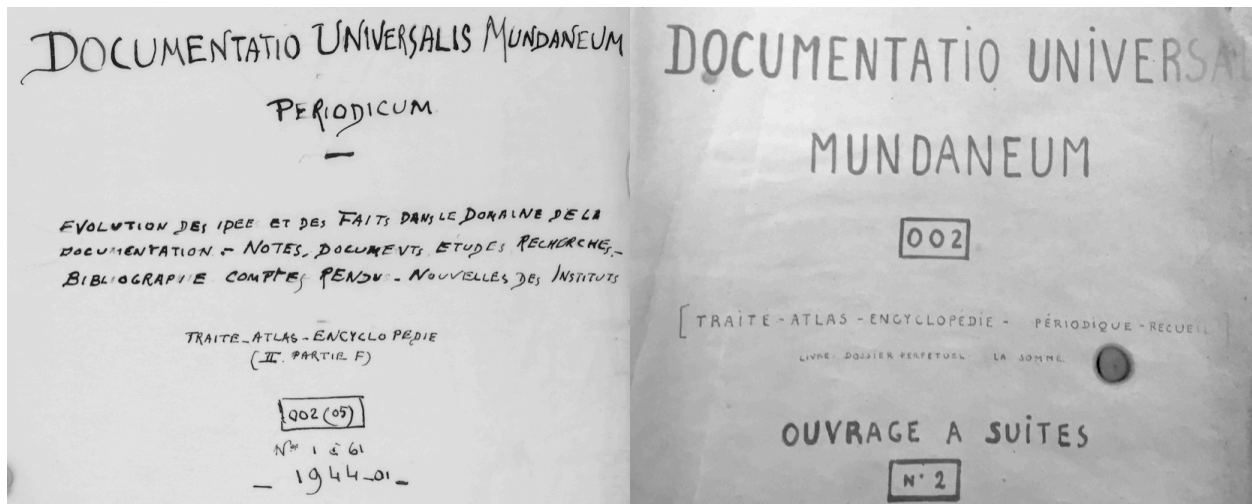 DOCUMENTATIO UNIVERSALIS MUNDANEUM
PERIODICUM
EVOLUTION DES IDEE ET DES FAITS DANS LE DOMAINE DE LA
DOCUMENTATION - NOTES, DOCUMENTS ETUDES RECHERCHES -
BIBLIOGRAPHIE COMPTES RENDU - NOUVELLES DES INSTITUTS
TRAITE-ATLAS-ENCYCLOPEDIE
(II. PARTIE F)
002 (05)
Nos 1 à 61
- 1944-01-
DOCUMENTATIO UNIVERSA
MUNDANEUM
002
[TRAITE - ATLAS - ENCYCLOPÉDIE - PÉRIODIQUE - RECUEIL]
LIVRE. DOSSIER PERPETUEL LA SOMME.
OUVRAGE A SUITES
N° 2